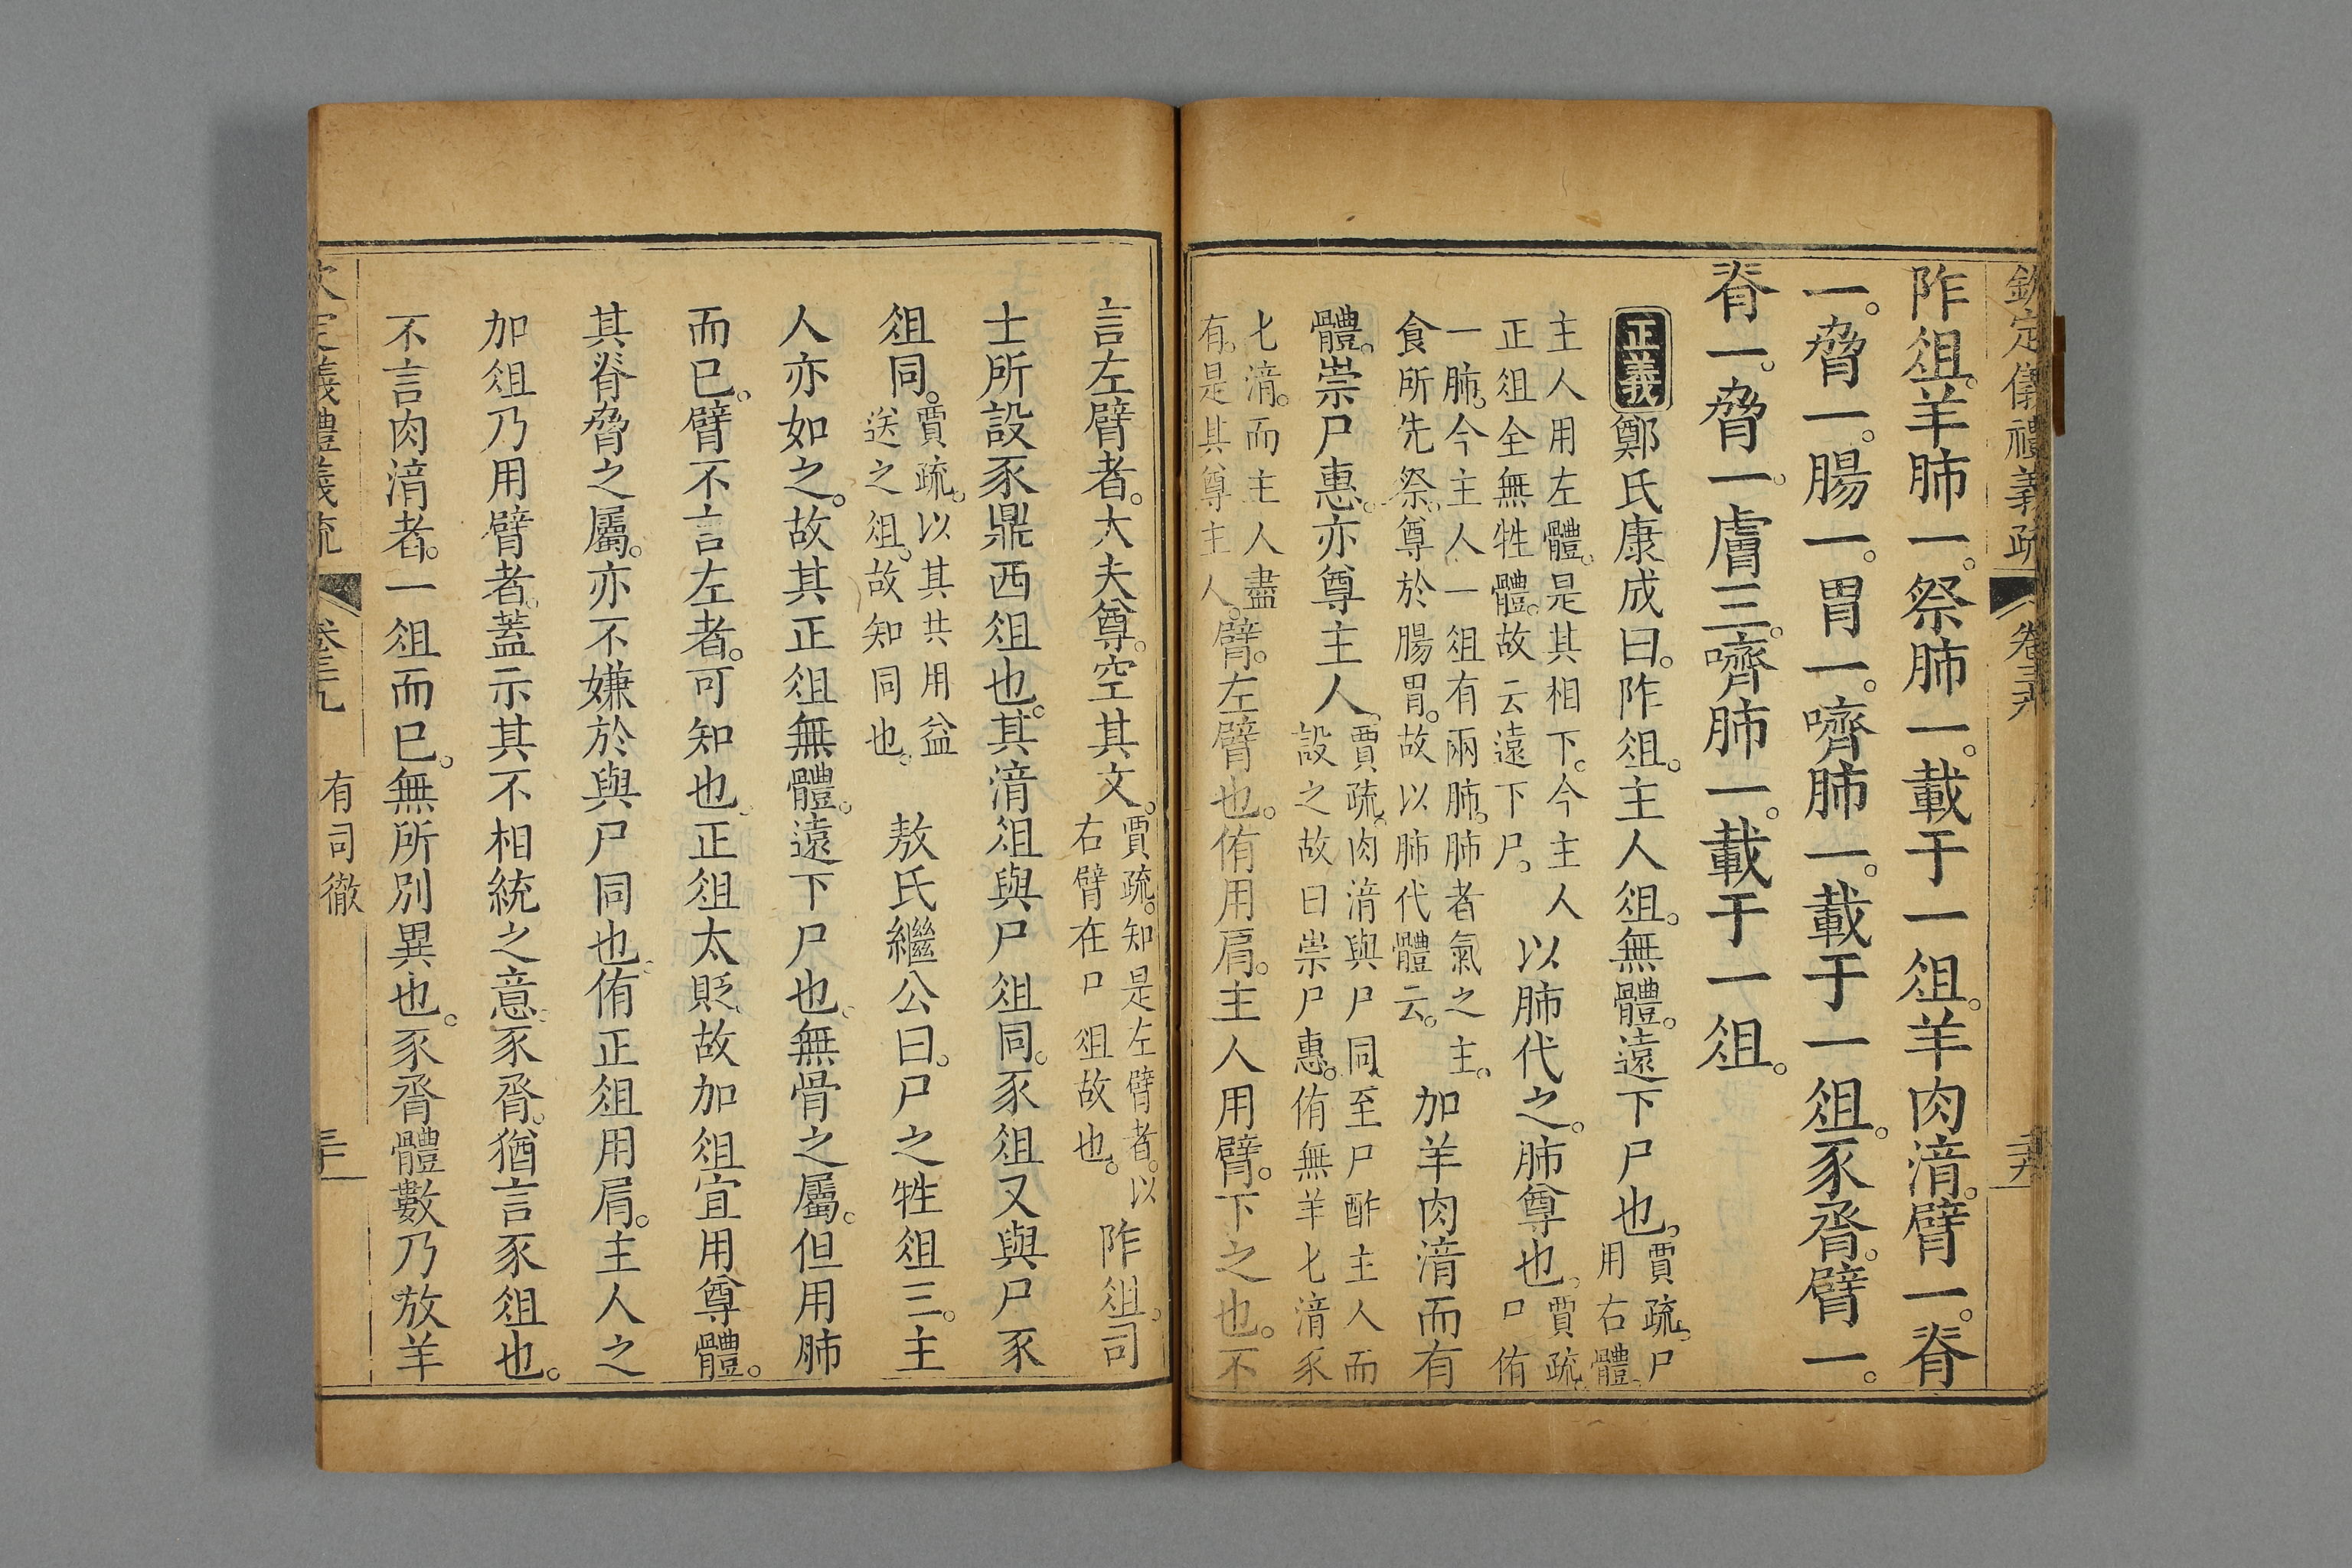 欽定儀禮義疏 卷三九
阼俎。羊肺一。祭肺一。載于一俎。羊肉湆。臂一。脊
一。脅一。腸一。胃一。嚌肺一。載于一俎。豕脀。臂一。
脊一。脅一。膚三。嚌肺一。載于一俎。
正義 鄭氏康成曰。阼俎。主人俎。無體。遠下尸也。賈疏。尸用右體。
主人用左體。是其相下。今主人正俎全無牲體。故云遠下尸。 以肺代之。肺尊也。賈疏。尸侑
一肺。今主人一俎有兩肺。肺者氣之主。食所先祭。尊於腸胃。故以肺代體云。 加羊肉湆而有
體。崇尸惠。亦尊主人。賈疏。肉湆與尸同。至尸酢主人而設之。故曰崇尸惠。侑無羊匕湆豕
匕湆。而主人盡有。是其尊主人。臂。左臂也。侑用肩。主人用臂。下之也。不
言左臂者。大夫尊。空其文。賈疏。知是左臂者。以右臂在尸俎故也。 阼俎。司
士所設豕鼎西俎也。其湆俎與尸俎同。豕俎又與尸豕
俎同。賈疏。以其共用益送之俎。故知同也。 敖氏繼公曰。尸之牲俎三。主
人亦如之。故其正俎無體。遠下尸也。無骨之屬。但用肺
而已。臂不言左者。可知也。正俎太貶。故加俎宜用尊體。
其脊脅之屬。亦不嫌於與尸同也。侑正俎用肩。主人之
加俎乃用臂者。蓋示其不相統之意。豕脀。猶言豕俎也。
不言肉湆者。一俎而已。無所別異也。豕脀體數乃放羊
義禮義疏 卷三九 有司徹